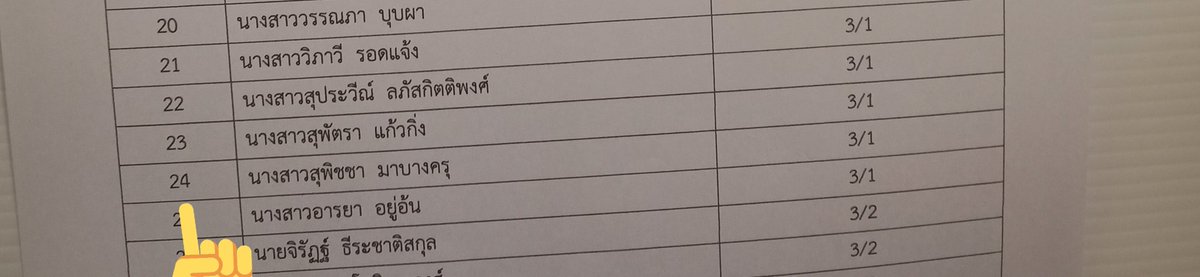 20 นางสาววรรณภา บุบผา
21 นางสาววิภาวี รอดแจ้ง 3/1
22 นางสาวสุประวีณ์ ลภัสกิตติพงศ์ 3/1
23 นางสาวสุพัตรา แก้วกิ่ง 3/1
24 นางสาวสุพิชชา มาบางครุ 3/1
2 นางสาวอารยา อยู่อ้น 3/1
นายจิรัฏฐ์ ธีระชาติสกุล 3/2
3/2